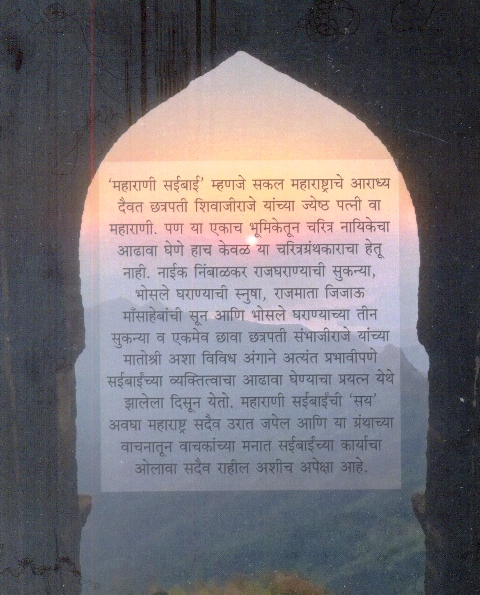 'महाराणी सईबाई' म्हणजे सकल महाराष्ट्राचे आराध्य
दैवत छत्रपती शिवाजीराजे यांच्या ज्येष्ठ पत्नी वा
महाराणी. पण या एकाच भूमिकेतून चरित्र नायिकेचा
आढावा घेणे हाच केवळ या चरित्रग्रंथकाराचा हेतू
नाही. नाईक निंबाळकर राजघराण्याची सुकन्या,
भोसले घराण्याची स्नुषा, राजमाता जिजाऊ
माँसाहेबांची सून आणि भोसले घराण्याच्या तीन
सुकन्या व एकमेव छावा छत्रपती संभाजीराजे यांच्या
मातोश्री अशा विविध अंगाने अत्यंत प्रभावीपणे
सईबाईंच्या व्यक्तित्वाचा आढावा घेण्याचा प्रयत्न येथे
झालेला दिसून येतो. महाराणी सईबाईंची 'सय'
अवघा महाराष्ट्र सदैव उरात जपेल आणि या ग्रंथाच्या
वाचनातून वाचकांच्या मनात सईबाईंच्या कार्याचा
ओलावा सदैव राहील अशीच अपेक्षा आहे.